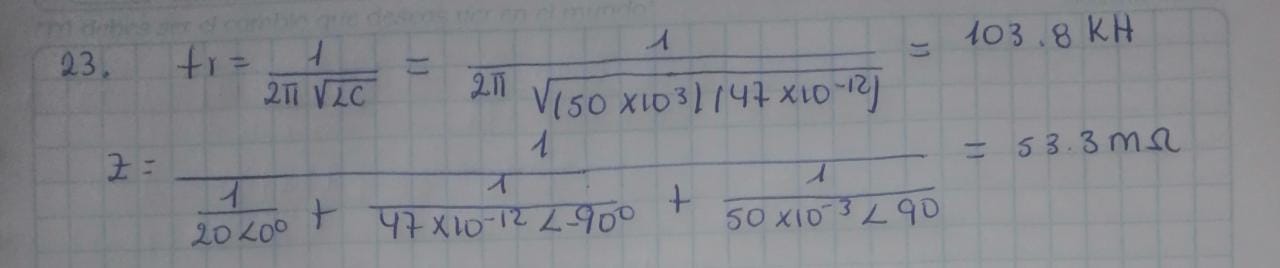 m debes ser el cambio que deseas ver en el mundo
23. fr = 1 / 2π √LC = 1 / 2π √(50 x10³)(47 x10⁻¹²) = 103.8 KH
Z = 1 / 1 / 20<0° + 1 / 47x10⁻¹² <-90° + 1 / 50x10⁻³ <90 = 53.3 mΩ